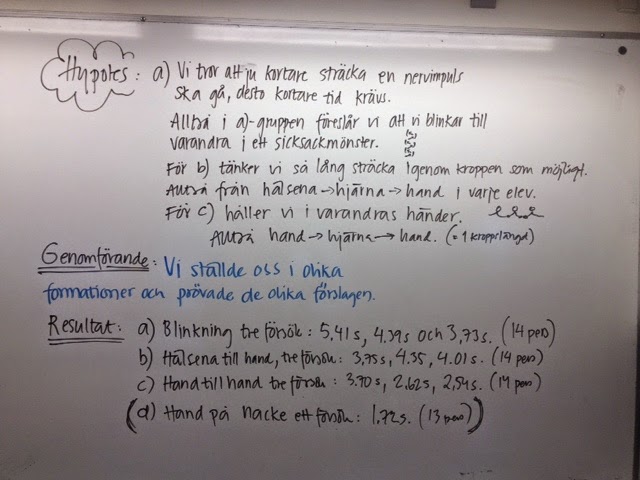 Hypotes: a) Vi tror att ju kortare sträcka en nervimpuls
ska gå, desto kortare tid krävs.
Alltså i a)-gruppen föreslår vi att vi blinkar till
varandra i ett sicksackmönster.
För b) tänker vi så lång sträcka igenom kroppen som möjligt.
Alltså från hälsena → hjärna → hand i varje elev.
För c) håller vi i varandras händer.
Alltså hand → hjärna → hand. (= 1 kroppslängd)
Genomförande: Vi ställde oss i olika
formationer och prövade de olika förslagen.
Resultat: a) Blinkning tre försök: 5,41 s, 4.39s och 3,73s. (14 pers)
b) Hälsena till hand, tre försök: 3,75s, 4.35, 4.01s. (14 pers)
c) Hand till hand tre försök: 3.70s, 2.62s, 2,54s. (14 pers)
(d) Hand på nacke ett försök: 1.72s. (13 pers))